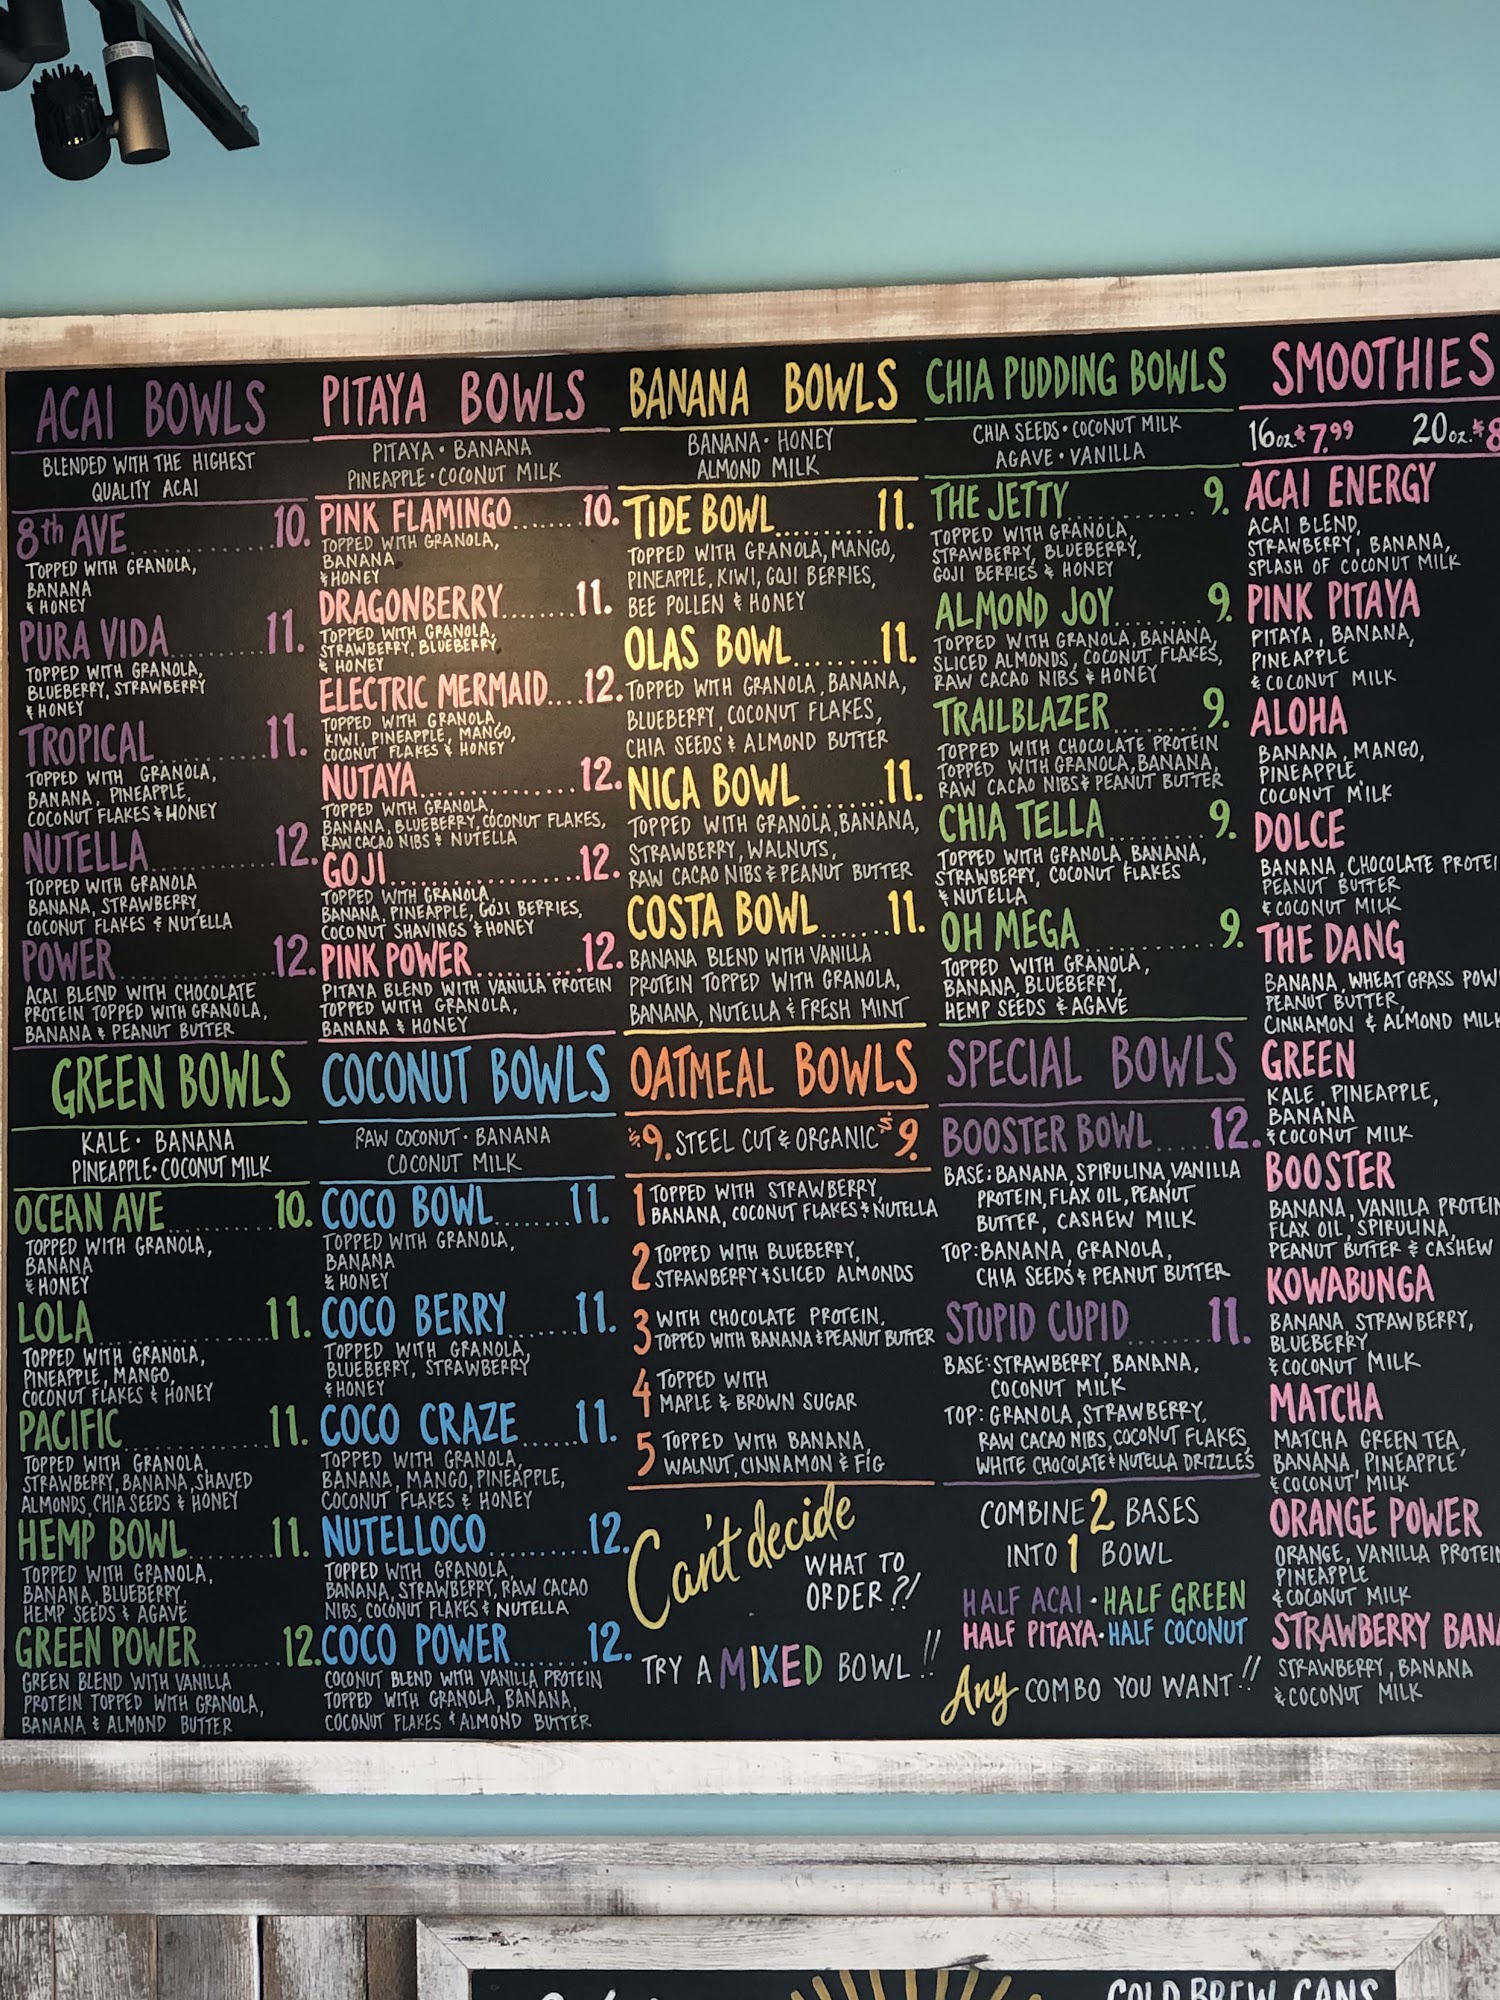 ACAI BOWLS
BLENDED WITH THE HIGHEST
QUALITY ACAI
8th AVE 10.
TOPPED WITH GRANOLA,
BANANA
& HONEY
PURA VIDA 11.
TOPPED WITH GRANOLA,
BLUEBERRY, STRAWBERRY
& HONEY
TROPICAL 11.
TOPPED WITH GRANOLA,
BANANA, PINEAPPLE,
COCONUT FLAKES & HONEY
NUTELLA 12.
TOPPED WITH GRANOLA
BANANA, STRAWBERRY,
COCONUT FLAKES & NUTELLA
POWER 12.
ACAI BLEND WITH CHOCOLATE
PROTEIN TOPPED WITH GRANOLA,
BANANA & PEANUT BUTTER
GREEN BOWLS
KALE · BANANA
PINEAPPLE · COCONUT MILK
OCEAN AVE 10.
TOPPED WITH GRANOLA,
BANANA
& HONEY
LOLA 11.
TOPPED WITH GRANOLA,
PINEAPPLE, MANGO,
COCONUT FLAKES & HONEY
PACIFIC 11.
TOPPED WITH GRANOLA,
STRAWBERRY, BANANA, SHAVED
ALMONDS, CHIA SEEDS & HONEY
HEMP BOWL 11.
TOPPED WITH GRANOLA,
BANANA, BLUEBERRY,
HEMP SEEDS & AGAVE
GREEN POWER 12.
GREEN BLEND WITH VANILLA
PROTEIN TOPPED WITH GRANOLA,
BANANA & ALMOND BUTTER
PITAYA BOWLS
PITAYA · BANANA
PINEAPPLE · COCONUT MILK
PINK FLAMINGO 10.
TOPPED WITH GRANOLA,
BANANA
& HONEY
DRAGONBERRY 11.
TOPPED WITH GRANOLA,
STRAWBERRY, BLUEBERRY
& HONEY
ELECTRIC MERMAID 12.
TOPPED WITH GRANOLA,
KIWI, PINEAPPLE, MANGO,
COCONUT FLAKES & HONEY
NUTAYA 12.
TOPPED WITH GRANOLA,
BANANA, BLUEBERRY, COCONUT FLAKES,
RAW CACAO NIBS & NUTELLA
GOJI 12.
TOPPED WITH GRANOLA,
BANANA, PINEAPPLE, GOJI BERRIES,
COCONUT SHAVINGS & HONEY
PINK POWER 12.
PITAYA BLEND WITH VANILLA PROTEIN
TOPPED WITH GRANOLA,
BANANA & HONEY
COCONUT BOWLS
RAW COCONUT · BANANA
COCONUT MILK
COCO BOWL 11.
TOPPED WITH GRANOLA,
BANANA
& HONEY
COCO BERRY 11.
TOPPED WITH GRANOLA,
BLUEBERRY, STRAWBERRY
& HONEY
COCO CRAZE 11.
TOPPED WITH GRANOLA,
BANANA, MANGO, PINEAPPLE,
COCONUT FLAKES & HONEY
NUTELLOCO 12.
TOPPED WITH GRANOLA,
BANANA, STRAWBERRY, RAW CACAO
NIBS, COCONUT FLAKES & NUTELLA
COCO POWER 12.
COCONUT BLEND WITH VANILLA PROTEIN
TOPPED WITH GRANOLA, BANANA,
COCONUT FLAKES & ALMOND BUTTER
BANANA BOWLS
BANANA · HONEY
ALMOND MILK
TIDE BOWL 11.
TOPPED WITH GRANOLA, MANGO,
PINEAPPLE, KIWI, GOJI BERRIES,
BEE POLLEN & HONEY
OLAS BOWL 11.
TOPPED WITH GRANOLA, BANANA,
BLUEBERRY, COCONUT FLAKES,
CHIA SEEDS & ALMOND BUTTER
NICA BOWL 11.
TOPPED WITH GRANOLA, BANANA,
STRAWBERRY, WALNUTS,
RAW CACAO NIBS & PEANUT BUTTER
COSTA BOWL 11.
BANANA BLEND WITH VANILLA
PROTEIN TOPPED WITH GRANOLA,
BANANA, NUTELLA & FRESH MINT
OATMEAL BOWLS
$9. STEEL CUT & ORGANIC $9.
1 TOPPED WITH STRAWBERRY,
BANANA, COCONUT FLAKES & NUTELLA
2 TOPPED WITH BLUEBERRY,
STRAWBERRY & SLICED ALMONDS
3 WITH CHOCOLATE PROTEIN,
TOPPED WITH BANANA & PEANUT BUTTER
4 TOPPED WITH
MAPLE & BROWN SUGAR
5 TOPPED WITH BANANA,
WALNUT, CINNAMON & FIG
Can't decide
WHAT TO
ORDER?!
TRY A MIXED BOWL!!
CHIA PUDDING BOWLS
CHIA SEEDS · COCONUT MILK
AGAVE · VANILLA
THE JETTY 9.
TOPPED WITH GRANOLA,
STRAWBERRY, BLUEBERRY,
GOJI BERRIES & HONEY
ALMOND JOY 9.
TOPPED WITH GRANOLA, BANANA,
SLICED ALMONDS, COCONUT FLAKES,
RAW CACAO NIBS & HONEY
TRAILBLAZER 9.
TOPPED WITH CHOCOLATE PROTEIN
TOPPED WITH GRANOLA, BANANA,
RAW CACAO NIBS & PEANUT BUTTER
CHIA TELLA 9.
TOPPED WITH GRANOLA, BANANA,
STRAWBERRY, COCONUT FLAKES
& NUTELLA
OH MEGA 9.
TOPPED WITH GRANOLA,
BANANA, BLUEBERRY,
HEMP SEEDS & AGAVE
SPECIAL BOWLS
BOOSTER BOWL 12.
BASE: BANANA, SPIRULINA, VANILLA
PROTEIN, FLAX OIL, PEANUT
BUTTER, CASHEW MILK
TOP: BANANA, GRANOLA,
CHIA SEEDS & PEANUT BUTTER
STUPID CUPID 11.
BASE: STRAWBERRY, BANANA,
COCONUT MILK
TOP: GRANOLA, STRAWBERRY,
RAW CACAO NIBS, COCONUT FLAKES,
WHITE CHOCOLATE & NUTELLA DRIZZLES
COMBINE 2 BASES
INTO 1 BOWL
HALF ACAI · HALF GREEN
HALF PITAYA · HALF COCONUT
Any COMBO YOU WANT!!
SMOOTHIES
16oz $7.99 20oz. $8
ACAI ENERGY
ACAI BLEND,
STRAWBERRY, BANANA,
SPLASH OF COCONUT MILK
PINK PITAYA
PITAYA, BANANA,
PINEAPPLE
& COCONUT MILK
ALOHA
BANANA, MANGO,
PINEAPPLE,
COCONUT MILK
DOLCE
BANANA, CHOCOLATE PROTEI
PEANUT BUTTER
& COCONUT MILK
THE DANG
BANANA, WHEATGRASS POW
PEANUT BUTTER,
CINNAMON & ALMOND MILK
GREEN
KALE, PINEAPPLE,
BANANA
& COCONUT MILK
BOOSTER
BANANA, VANILLA PROTEIN
FLAX OIL, SPIRULINA,
PEANUT BUTTER & CASHEW
KOWABUNGA
BANANA, STRAWBERRY,
BLUEBERRY
& COCONUT MILK
MATCHA
MATCHA GREEN TEA,
BANANA, PINEAPPLE
& COCONUT MILK
ORANGE POWER
ORANGE, VANILLA PROTEIN
PINEAPPLE
& COCONUT MILK
STRAWBERRY BANA
STRAWBERRY, BANANA
& COCONUT MILK
COLD BREW CANS